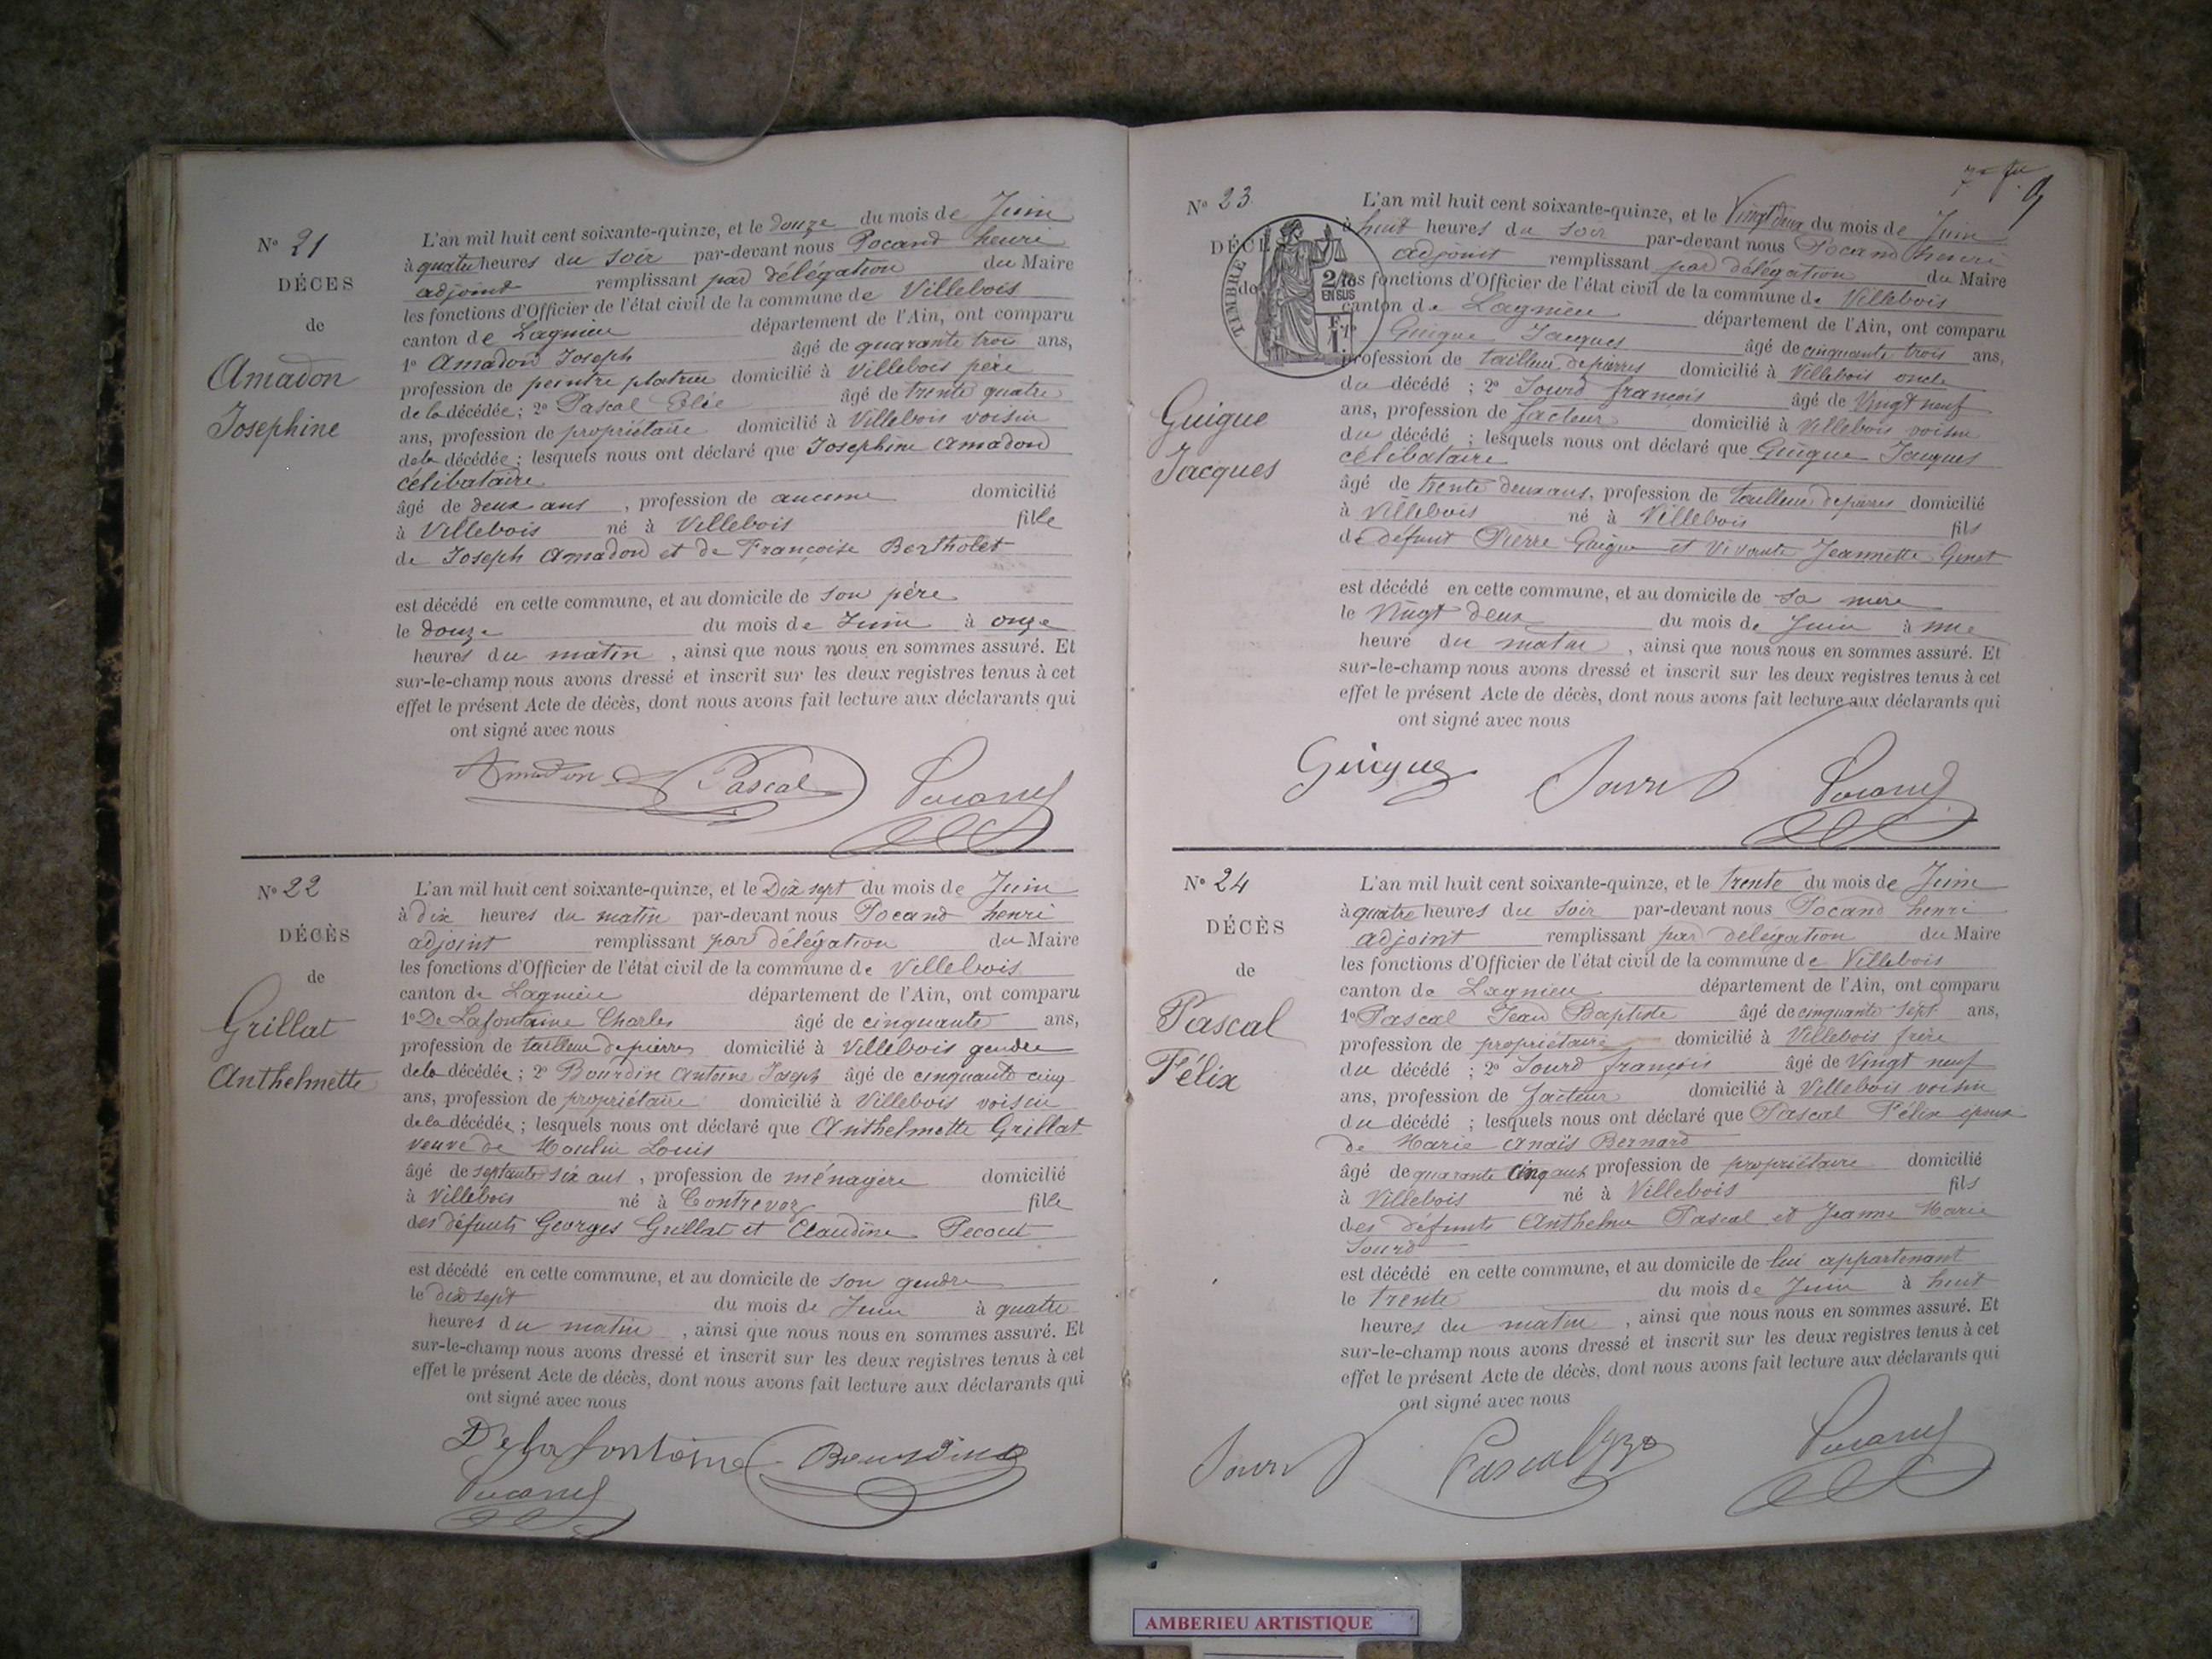 N° 21
DÉCES
de
Amadon
Josephine
L'an mil huit cent soixante-quinze, et le douze du mois de Juin
à quatre heures du soir par-devant nous Pocand henri
adjoint remplissant par délégation du Maire
les fonctions d'Officier de l'état civil de la commune de Villebois
canton de Lagnieu département de l'Ain, ont comparu
1° Amadon Joseph âgé de quarante trois ans,
profession de peintre platrier domicilié à Villebois père
de la décédée ; 2° Pascal Elie âgé de trente quatre
ans, profession de propriétaire domicilié à Villebois voisin
de la décédée ; lesquels nous ont déclaré que Josephine Amadon
célibataire
âgé de deux ans , profession de aucune domicilié
à Villebois né à Villebois fille
de Joseph Amadon et de Françoise Bertholet
est décédé en cette commune, et au domicile de son père
le douze du mois de Juin à onze
heures du matin , ainsi que nous nous en sommes assuré. Et
sur-le-champ nous avons dressé et inscrit sur les deux registres tenus à cet
effet le présent Acte de décès, dont nous avons fait lecture aux déclarants qui
ont signé avec nous
Amadon Pascal Pocand
N° 22
DÉCÈS
de
Grillat
Anthelmette
L'an mil huit cent soixante-quinze, et le Dix sept du mois de Juin
à dix heures du matin par-devant nous Pocand henri
adjoint remplissant par délégation du Maire
les fonctions d'Officier de l'état civil de la commune de Villebois
canton de Lagnieu département de l'Ain, ont comparu
1° De Lafontaine Charles âgé de cinquante ans,
profession de tailleur de pierres domicilié à Villebois gendre
de la décédée ; 2° Bourdin Antoine Joseph âgé de cinquante cinq
ans, profession de propriétaire domicilié à Villebois voisin
de la décédée ; lesquels nous ont déclaré que Anthelmette Grillat
veuve de Moulin Louis
âgé de septante six ans , profession de ménagère domicilié
à Villebois né à Contrevoz fille
des défunts Georges Grillat et Claudine Pecout
est décédé en cette commune, et au domicile de son gendre
le dix sept du mois de Juin à quatre
heures du matin , ainsi que nous nous en sommes assuré. Et
sur-le-champ nous avons dressé et inscrit sur les deux registres tenus à cet
effet le présent Acte de décès, dont nous avons fait lecture aux déclarants qui
ont signé avec nous
Delafontaine Bourdin
Pocand
N° 23
DÉCÈ
de
TIMBRE
2/10
EN SUS
F.
1.
Guigue
Jacques
L'an mil huit cent soixante-quinze, et le Vingt deux du mois de Juin
à huit heures du soir par-devant nous Pocand henri
adjoint remplissant par délégation du Maire
les fonctions d'Officier de l'état civil de la commune de Villebois
canton de Lagnieu département de l'Ain, ont comparu
1° Guigue Jacques âgé de cinquante trois ans,
profession de tailleur de pierres domicilié à Villebois oncle
du décédé ; 2° Sourd françois âgé de Vingt neuf
ans, profession de facteur domicilié à Villebois voisin
du décédé ; lesquels nous ont déclaré que Guigue Jacques
célibataire
âgé de trente deux ans, profession de tailleur de pierres domicilié
à Villebois né à Villebois fils
de défunt Pierre Guigue et vivante Jeannette Genet
est décédé en cette commune, et au domicile de sa mère
le Vingt deux du mois de Juin à une
heure du matin , ainsi que nous nous en sommes assuré. Et
sur-le-champ nous avons dressé et inscrit sur les deux registres tenus à cet
effet le présent Acte de décès, dont nous avons fait lecture aux déclarants qui
ont signé avec nous
Guigue Sourd Pocand
N° 24
DÉCÈS
de
Pascal
Félix
L'an mil huit cent soixante-quinze, et le trente du mois de Juin
à quatre heures du soir par-devant nous Pocand henri
adjoint remplissant par délégation du Maire
les fonctions d'Officier de l'état civil de la commune de Villebois
canton de Lagnieu département de l'Ain, ont comparu
1° Pascal Jean Baptiste âgé de cinquante sept ans,
profession de propriétaire domicilié à Villebois frère
du décédé ; 2° Sourd françois âgé de Vingt neuf
ans, profession de facteur domicilié à Villebois voisin
du décédé ; lesquels nous ont déclaré que Pascal Félix époux
de Marie Anaïs Bernard
âgé de quarante cinq ans profession de propriétaire domicilié
à Villebois né à Villebois fils
des défunts Anthelme Pascal et Jeanne Marie
Sourd
est décédé en cette commune, et au domicile de lui appartenant
le trente du mois de Juin à huit
heures du matin , ainsi que nous nous en sommes assuré. Et
sur-le-champ nous avons dressé et inscrit sur les deux registres tenus à cet
effet le présent Acte de décès, dont nous avons fait lecture aux déclarants qui
ont signé avec nous
Sourd Pascal Pocand
AMBERIEU ARTISTIQUE